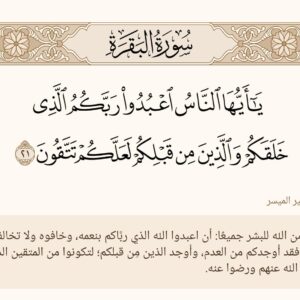 سُورَةُ البَقَرَةِ
يَٰٓأَيُّهَا ٱلنَّاسُ ٱعْبُدُوا۟ رَبَّكُمُ ٱلَّذِى
خَلَقَكُمْ وَٱلَّذِينَ مِن قَبْلِكُمْ لَعَلَّكُمْ تَتَّقُونَ ٢١
الميسر
من الله للبشر جميعًا: أن اعبدوا الله الذي ربَّاكم بنعمه، وخافوه ولا
فقد أوجدكم من العدم، وأوجد الذين مِن قبلكم؛ لتكونوا من المتقين
الله عنهم ورضوا عنه.